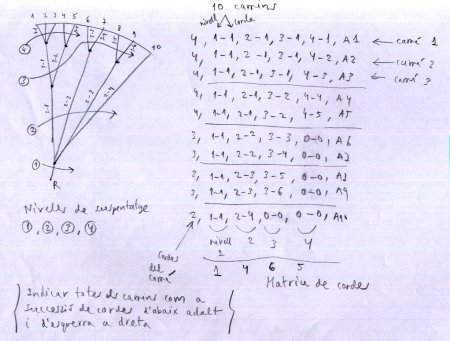 10 camins
nivell corda
1 2 3 4 5 6 7 8 9 10
4, 1-1, 2-1, 3-1, 4-1, A1 ← camí 1
4, 1-1, 2-1, 3-1, 4-2, A2 ← camí 2
4, 1-1, 2-1, 3-1, 4-3, A3 ← camí 3
4, 1-1, 2-1, 3-2, 4-4, A4
4, 1-1, 2-1, 3-2, 4-5, A5
3, 1-1, 2-2, 3-3, 0-0, A6
3, 1-1, 2-2, 3-4, 0-0, A7
3, 1-1, 2-3, 3-5, 0-0, A8
3, 1-1, 2-3, 3-6, 0-0, A9
2, 1-1, 2-4, 0-0, 0-0, A10
4
3
2
1
2-1 2-2 2-3 2-4
R
Nivells de suspentatge
1, 2, 3, 4
Cordes del camí
nivell 1 2 3 4
1 4 6 5
Matriu de cordes
Indicar totes els camins com a
successió de cordes d'abaix adalt
i d'esquerra a dreta